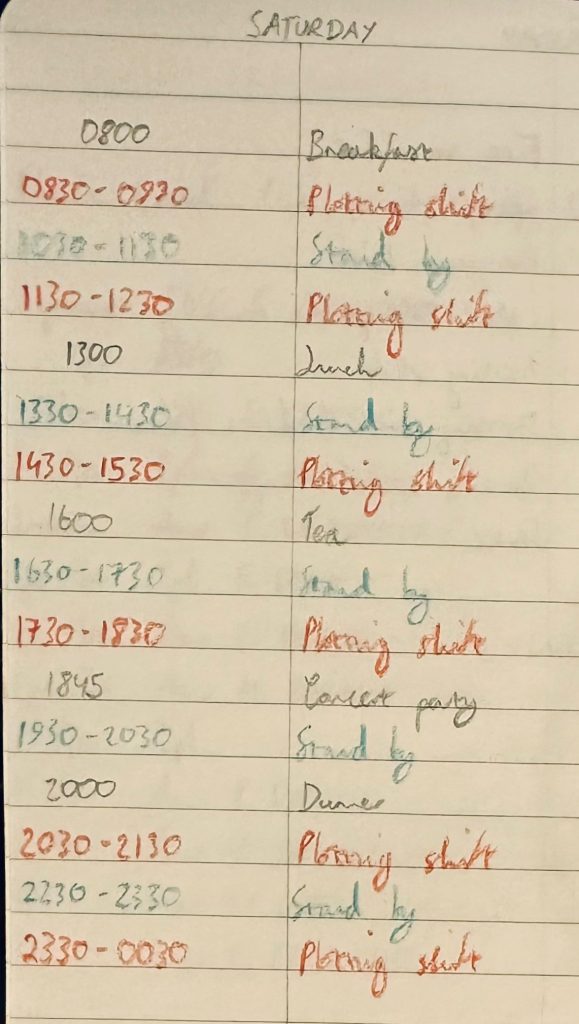 SATURDAY
0800 Breakfast
0830-0930 Plotting shift
1030-1130 Stand by
1130-1230 Plotting shift
1300 Lunch
1330-1430 Stand by
1430-1530 Plotting shift
1600 Tea
1630-1730 Stand by
1730-1830 Plotting shift
1845 Concert party
1930-2030 Stand by
2000 Dinner
2030-2130 Plotting shift
2230-2330 Stand by
2330-0030 Plotting shift